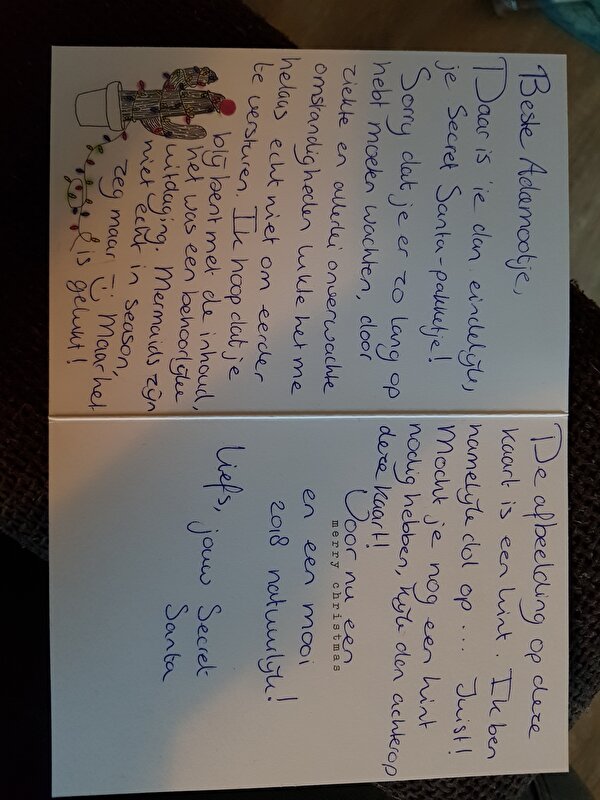 Beste Adamootje,
Daar is ie dan eindelijk,
je Secret Santa-pakketje!
Sorry dat je er zo lang op
hebt moeten wachten, door
ziekte en allerlei onverwachte
omstandigheden lukte het me
helaas echt niet om eerder
te versturen. Ik hoop dat je
blij bent met de inhoud,
het was een behoorlijke
uitdaging. Mermaids zijn
niet echt in season,
zeg maar =) Maar het
is gelukt!
De afbeelding op deze
kaart is een hint. Ik ben
namelijk dol op ... Juist!
Mocht je nog een hint
nodig hebben, kijk dan achterop
deze kaart!
Voor nu een
merry christmas
en een mooi
2018 natuurlijk!
Liefs, jouw Secret
Santa